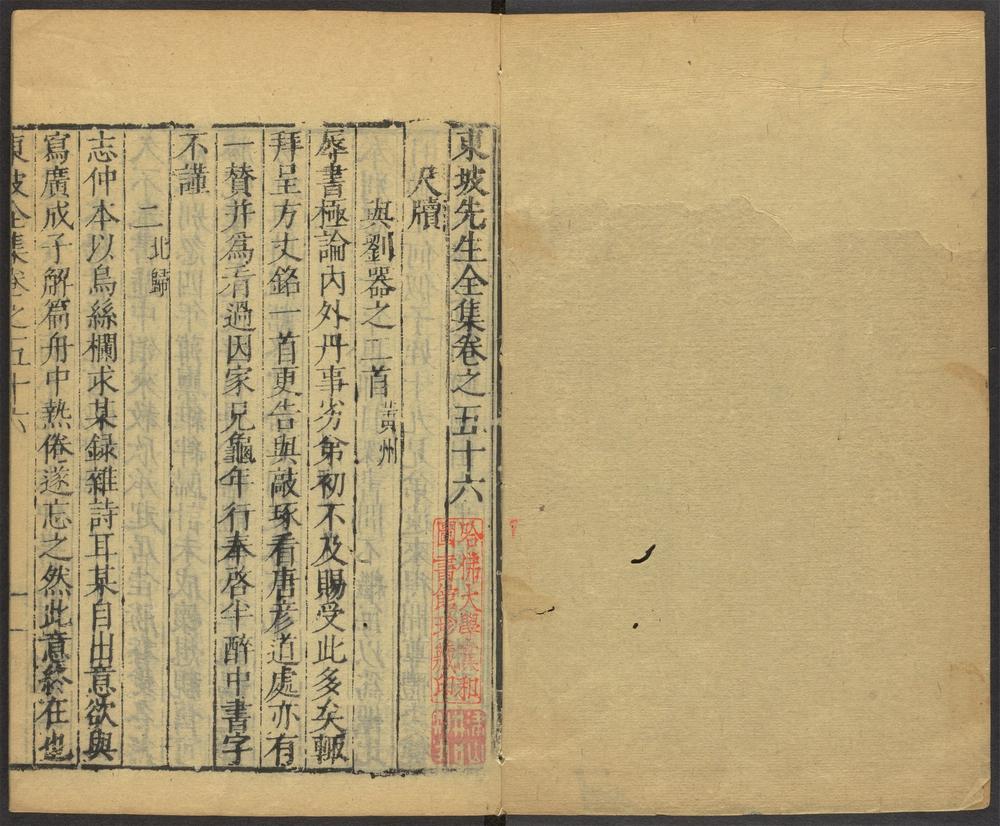 東坡先生全集卷之五十六
尺牘
與劉器之二首 黃州
辱書極論內外丹事劣弟初不及賜受此多矣輙
拜呈方丈銘一首更告與敲琢看唐彥道處亦有
一賛并為看過因家兄龜年行奉啓半醉中書字
不謹
二 北歸
志仲本以烏絲欄求某録雜詩耳某自出意欲與
寫廣成子解篇舟中熱倦遂忘之然此意終在也
東坡全集卷之五十六 一
哈佛大學漢和
圖書館珍藏印